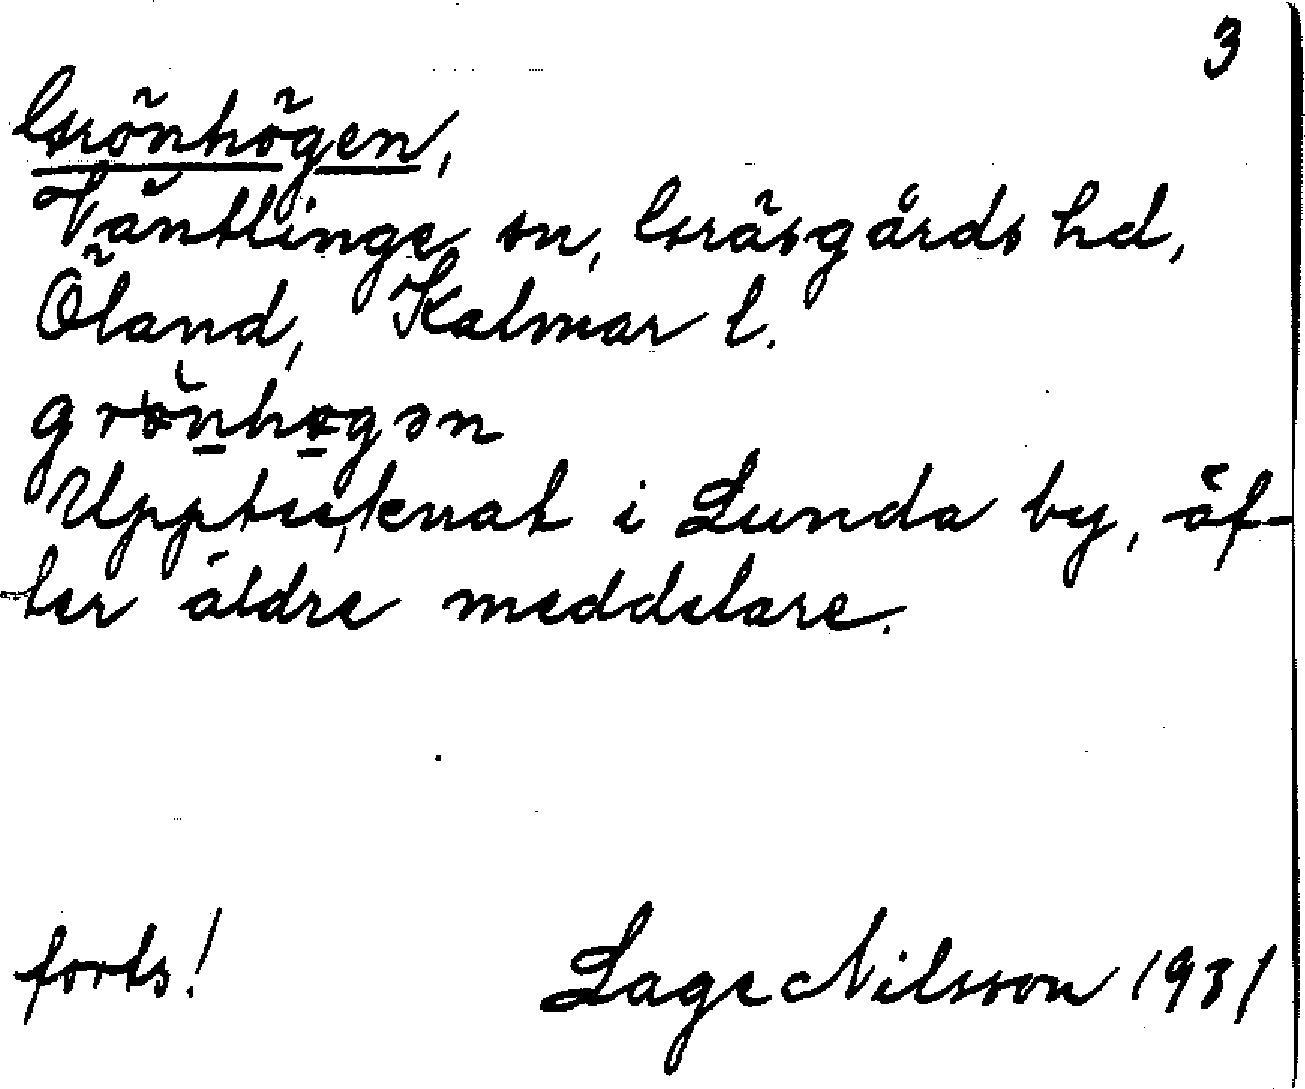 3
Grönhögen,
Väntlinge sn, Gräsgårds hd,
Öland, Kalmar l.
Upptecknat i Lunda by, äf-
ter äldre meddelare.
forts! Lage Nilsson 1931